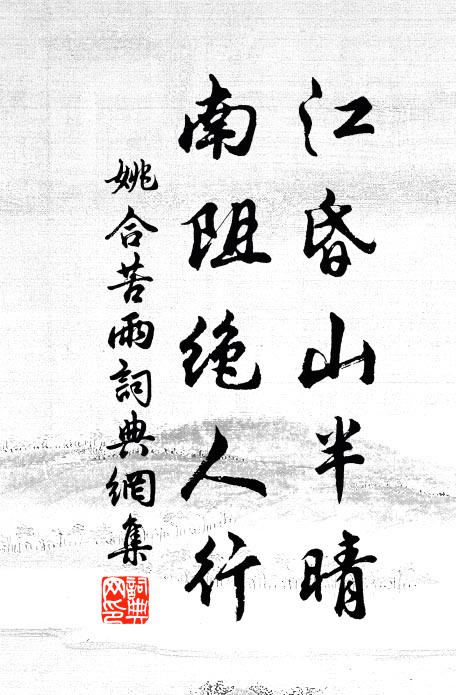 江昏山半晴
南阻绝人行
姚合苦雨詞典網集
詞典